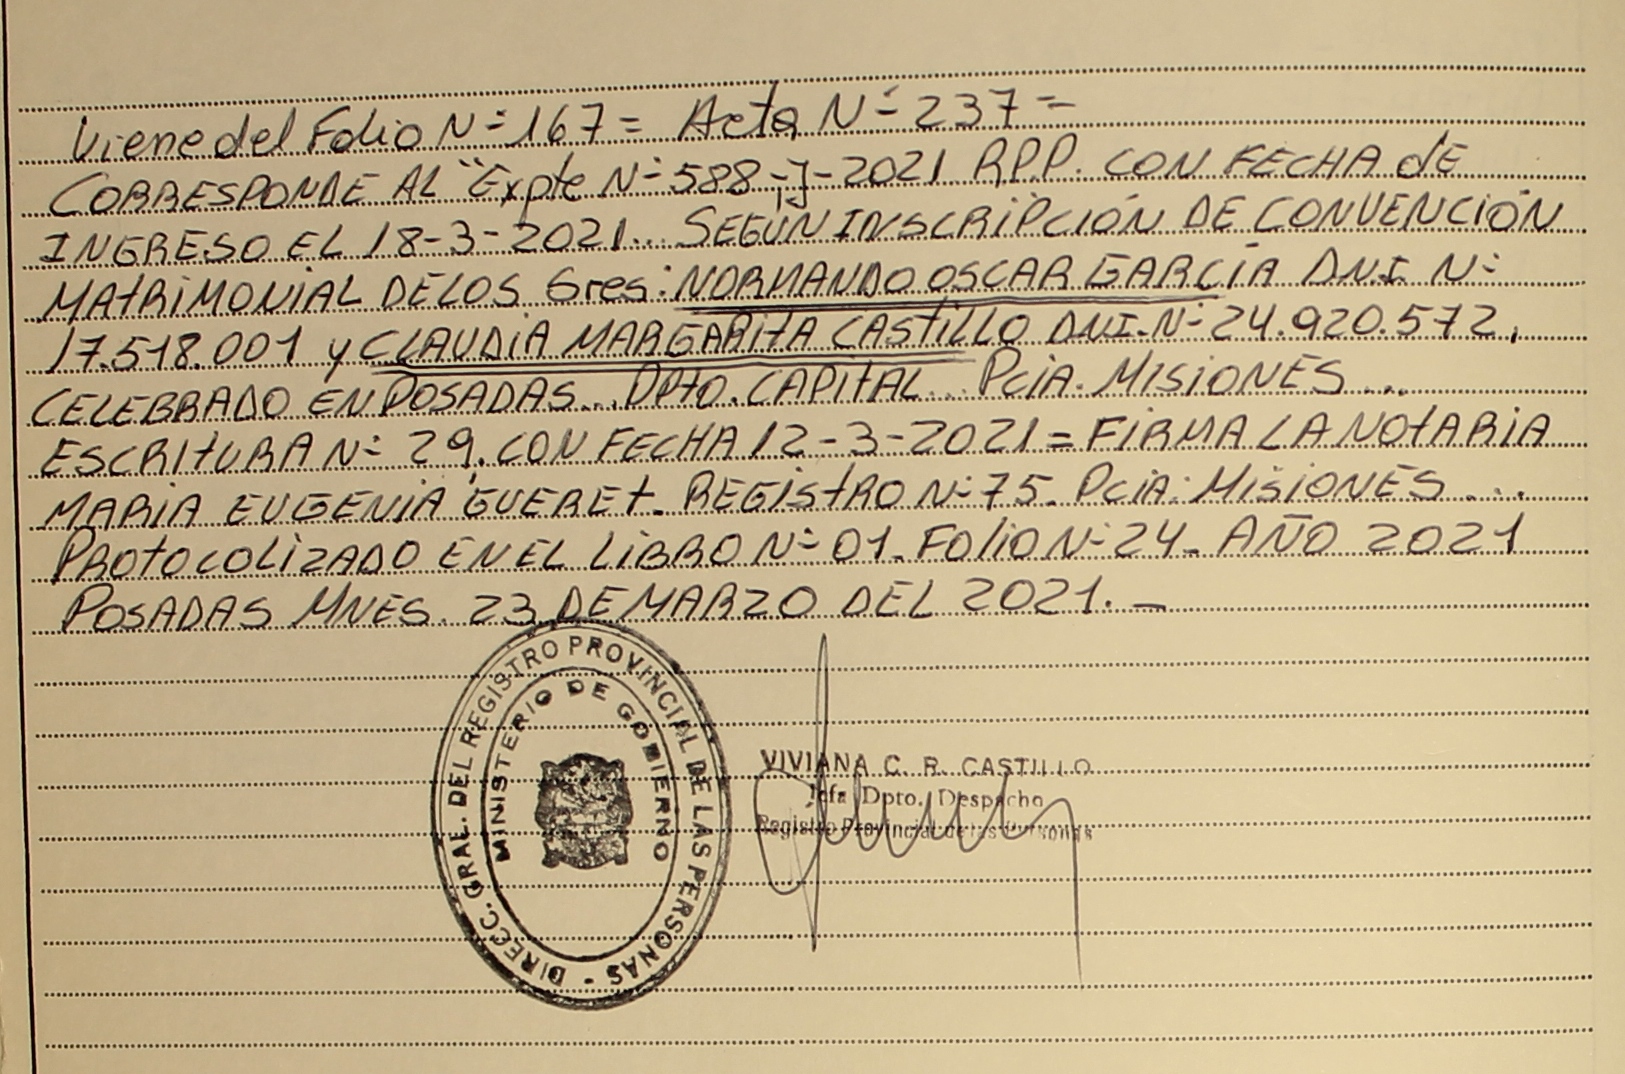 Viene del Folio Nº 167= Acta Nº 237=
CORRESPONDE AL "Expte Nº 588-J-2021 R.P.P. CON FECHA dE
INGRESO EL 18-3-2021... SEGÚN INSCRIPCIÓN DE CONVENCIÓN
MAtRIMONIAL DE LOS Sres: NORMANDO OSCAR GARCÍA D.N.I. Nº
17.518.001 y CLAUDIA MARGARItA CAStILLO D.N.I. Nº 24.920.572,
CELEBRADO EN POSADAS... DPtO. CAPItAL... PciA. MISIONES...
ESCRItURA Nº 29, CON FECHA 12-3-2021= FIRMA LA NOtARIA
MARIA EUGENIA GUEREt. REGIStRO Nº 75. PciA. MISIONES...
PROtOCOLIZADO EN EL LIBRO Nº 01. FOLIO Nº 24. AÑO 2021
POSADAS MNES. 23 DE MARZO DEL 2021.-
DIRECC. GRAL. DEL REGISTRO PROVINCIAL DE LAS PERSONAS -
MINISTERIO DE GOBIERNO
VIVIANA C. R. CASTILLO
Jefa Dpto. Despacho
Registro Provincial de las Personas